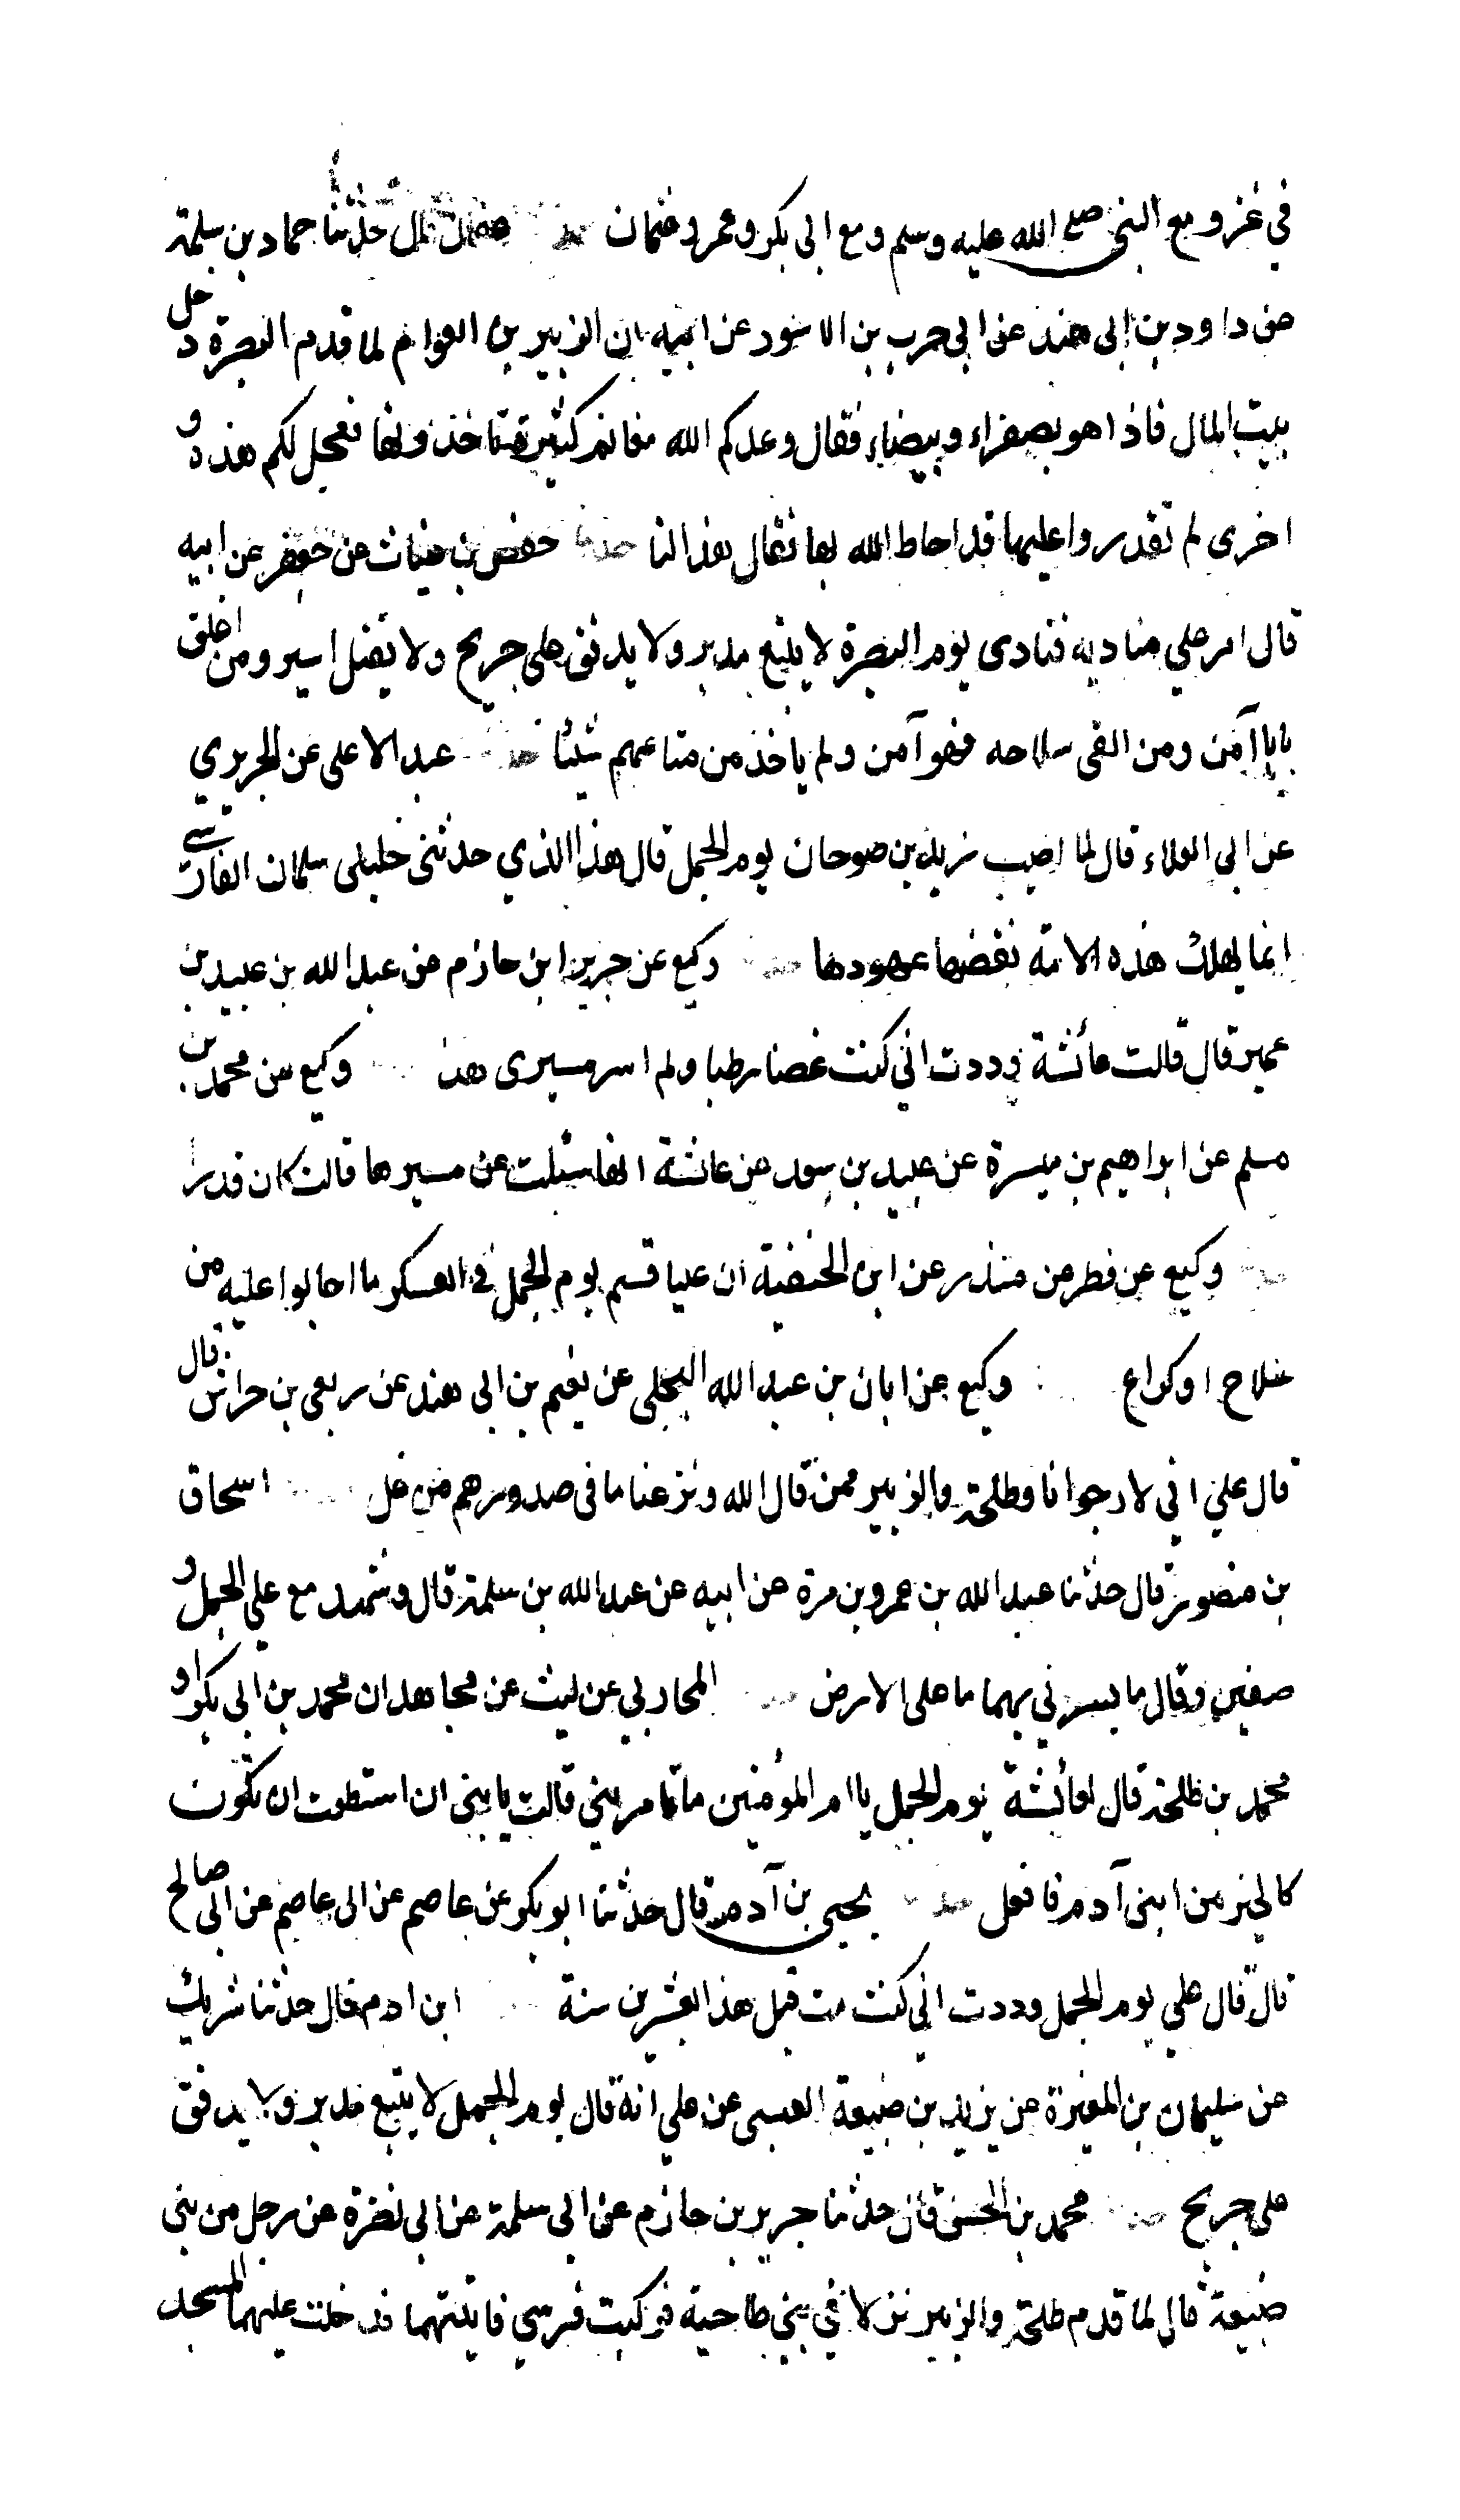 في غزو مع النبي صلى الله عليه وسلم ومع ابي بكر وعمر وعثمان قال حدثنا حماد بن سلمة
عن داود بن ابي هند عن ابي حرب بن الاسود عن ابيه ان الزبير بن العوام لما قدم البصرة دخل
بيت المال فاذا هو بصفراء وبيضاء فقال وعدكم الله مغانم كثيرة تاخذونها فعجل لكم هذه و
اخرى لم تقدروا عليها قد احاط الله بها فقال هذا لنا حدثنا حفص بن غياث عن جعفر عن ابيه
قال امر علي مناديه فنادى يوم البصرة لا يتبع مدبر ولا يدفق على جريح ولا يقتل اسير ومن اغلق
بابا آمن ومن القى سلاحه فهو آمن ولم ياخذ من متاعهم شيئا عبد الاعلى عن الجريري
عن ابي العلاء قال لما اصيب زيد بن صوحان يوم الجمل قال هذا الذي حدثني خليلي سلمان الفارسي
انما يهلك هذه الامة نقضها عهودها وكيع عن جرير ابن حازم عن عبد الله بن عبيد بن
عمير قال قالت عائشة وددت اني كنت غصنا رطبا ولم اسر مسيري هذا وكيع عن محمد بن
مسلم عن ابراهيم بن ميسرة عن عبيد بن سعد عن عائشة انها سئلت عن مسيرها قالت كان قدرا
وكيع عن فطر عن منذر عن ابن الحنفية ان عليا قسم يوم الجمل في العسكر ما اجابوا عليه من
سلاح او كراع وكيع عن ابان بن عبد الله البجلي عن نعيم بن ابي هند عن ربعي بن حراش قال
قال علي اني لارجو انا وطلحة والزبير ممن قال الله ونزعنا ما في صدورهم من غل اسحاق
بن منصور قال حدثنا عبد الله بن عمرو بن مرة عن ابيه عن عبد الله بن سلمة قال وشهد مع علي الجمل و
صفين وقال ما يسرني بهما ما على الارض المحاربي عن ليث عن مجاهد ان محمد بن ابي بكر او
محمد بن طلحة قال لعائشة يوم الجمل يا ام المؤمنين ما تامريني قالت يا بني ان استطعت ان تكون
كالخير من ابني آدم فافعل يحيى بن آدم قال حدثنا ابو بكر عن عاصم عن ابي عاصم عن ابي صالح
قال قال علي يوم الجمل وددت اني كنت مت قبل هذا بعشرين سنة ابن ادم قال حدثنا شريك
عن سليمان بن المغيرة عن يزيد بن ضبيعة العبسي عن علي انه قال يوم الجمل لا يتبع مدبر ولا يدفق
على جريح محمد بن الحسن قال حدثنا جرير بن حازم عن ابي سلمة عن ابي نضرة عن رجل من بني
ضبيعة قال لما قدم طلحة والزبير نزلا في بني طاحية فركبت فرسي فاتيتهما فدخلت عليهما المسجد